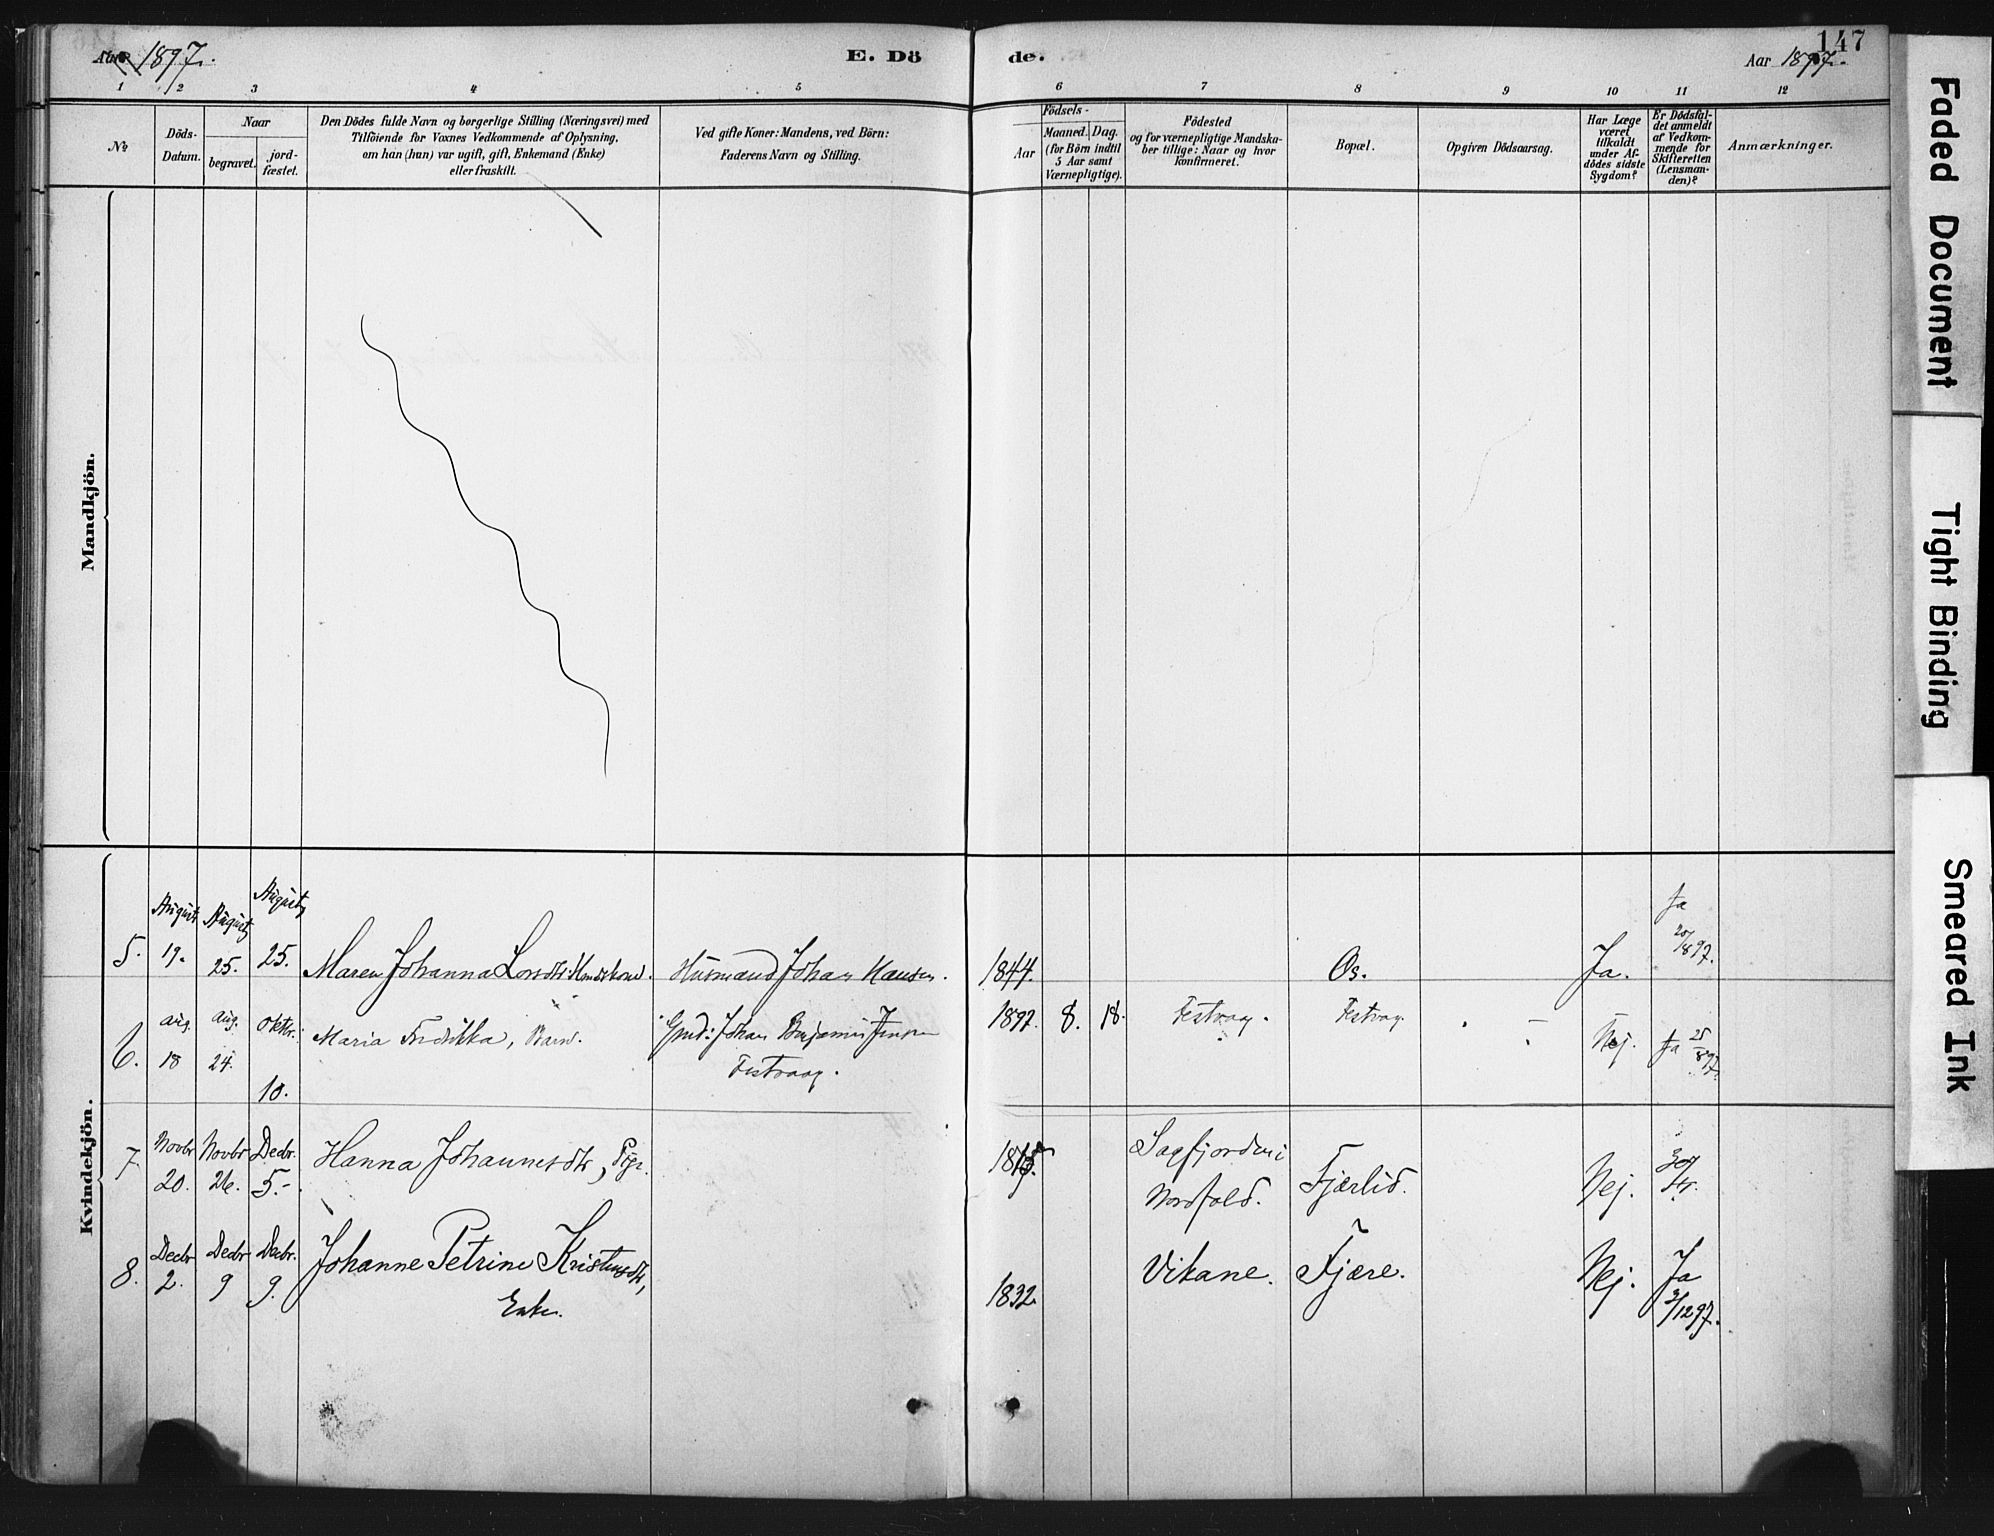 Aar 1897.
E. Dö
de.
147
Aar 1897.
1 2 3 4 5 6 7 8 9 10 11 12
№
Döds-
Datum.
Naar
begravet.
jord-
fæstet.
Den Dödes fulde Navn og borgerlige Stilling (Næringsvei) med
Tilföiende for Voxnes Vedkommende af Oplysning,
om han (hun) var ugift, gift, Enkemand (Enke)
eller fraskilt.
Ved gifte Koner: Mandens, ved Börn:
Faderens Navn og Stilling.
Födsels-
Aar
Maaned. Dag.
(for Börn indtil
5 Aar samt
Værnepligtige).
Födested
og for værnepligtige Mandska-
ber tillige: Naar og hvor
konfirmeret.
Bopæl.
Opgiven Dödsaarsag.
Har Læge
været
tilkaldt
under Af-
dödes sidste
Sygdom?
Er Dödsfal-
det anmeldt
af Vedkom-
mende for
Skifteretten
(Lensman-
den)?
Anmærkninger.
Mandkjön.
Kvindekjön.
5. August 19. August 25. August 25. Maren Johanna Husmand Johan Hansen. 1844. Os. Ja. Ja 20/8 97.
6. aug. 18 aug. 24. Oktbr. 10. Maria Fredrikka, Barn. Johan Benjamin Jensen
Festvaag.
1897. 8. 18. Festvag. Festvag. Nej. Ja 25/8 97.
7. Novbr 20. Novbr 26. Decbr. 5. Hanna Johannesdtr, Pige. Sagfjorden i
Nordfold. Fjærlid. Nej.
8. Decbr 2. Decbr 9 Decbr. 9. Johanne Petrine Kristensdtr,
Enke.
1832. Vikane. Fjære. Nej. Ja
3/12 97.
Faded Document
Tight Binding
Smeared Ink